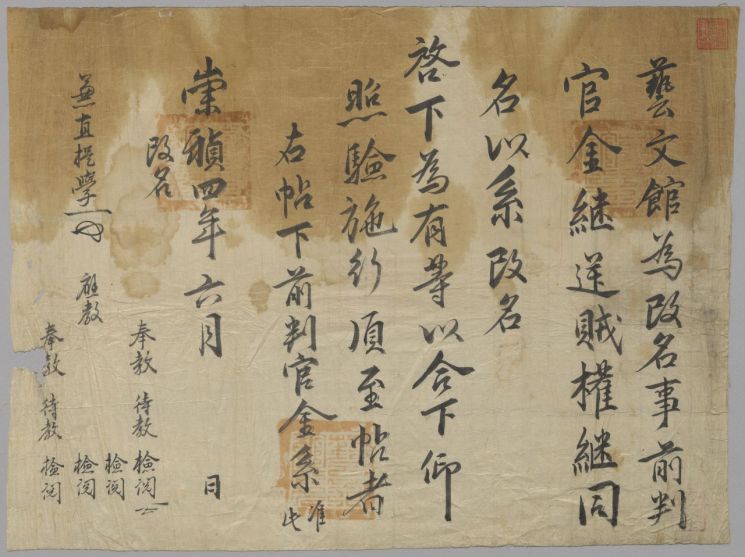 藝文館為改名事前判
官金継逆賊權継同
名以系改名
啓下為有等以合下仰
照驗施行須至帖者
右帖下前判官金系 准此
崇禎四年六月 日
改名
奉教 待教 檢閱
檢閱
兼直提學 應教 檢閱
奉教 待教 檢閱